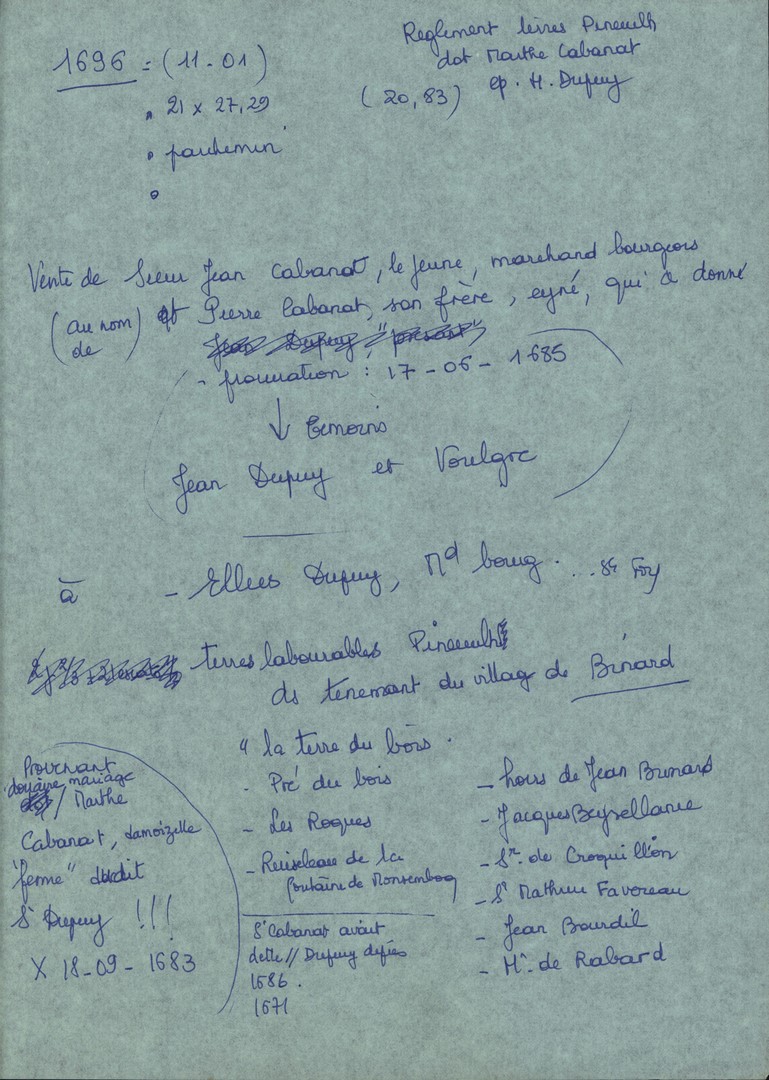 1696 = (11-01)
• 21 x 27,29
• parchemin
•
Reglement terres Pineuilh
dot Marthe Cabanat
(20,83) ep. H. Dupuy
Vente de Sieur Jean Cabanat, le jeune, marchand bourgeois
(au nom de) Pierre Cabanat, son frère, eyné, qui a donné
Jean Dupuy "présent"
- procuration : 17-06-1685
↓ temoins
Jean Dupuy et Voulgre
à - Ellies Dupuy, Md bourg... Ste Foy
terres labourables Pineuilh
ds tenemant du village de Binard
" la terre du bois.
- Pré du bois
- Les Roques
- Ruisseau de la
fontaine de
S' Cabanat avait
dette // Dupuy depuis
1686.
1671
- hoirs de Jean Brunard
- Jacques Beysellance
- Sr. de Croquillon
- Sr Mathieu Favereau
- Jean Bourdil
- Mr. de Rabard
Provenant
douaire mariage
/ Marthe
Cabanat, damoizelle
"ferme" dudit
Sr Dupuy !!!
X 18-09-1683